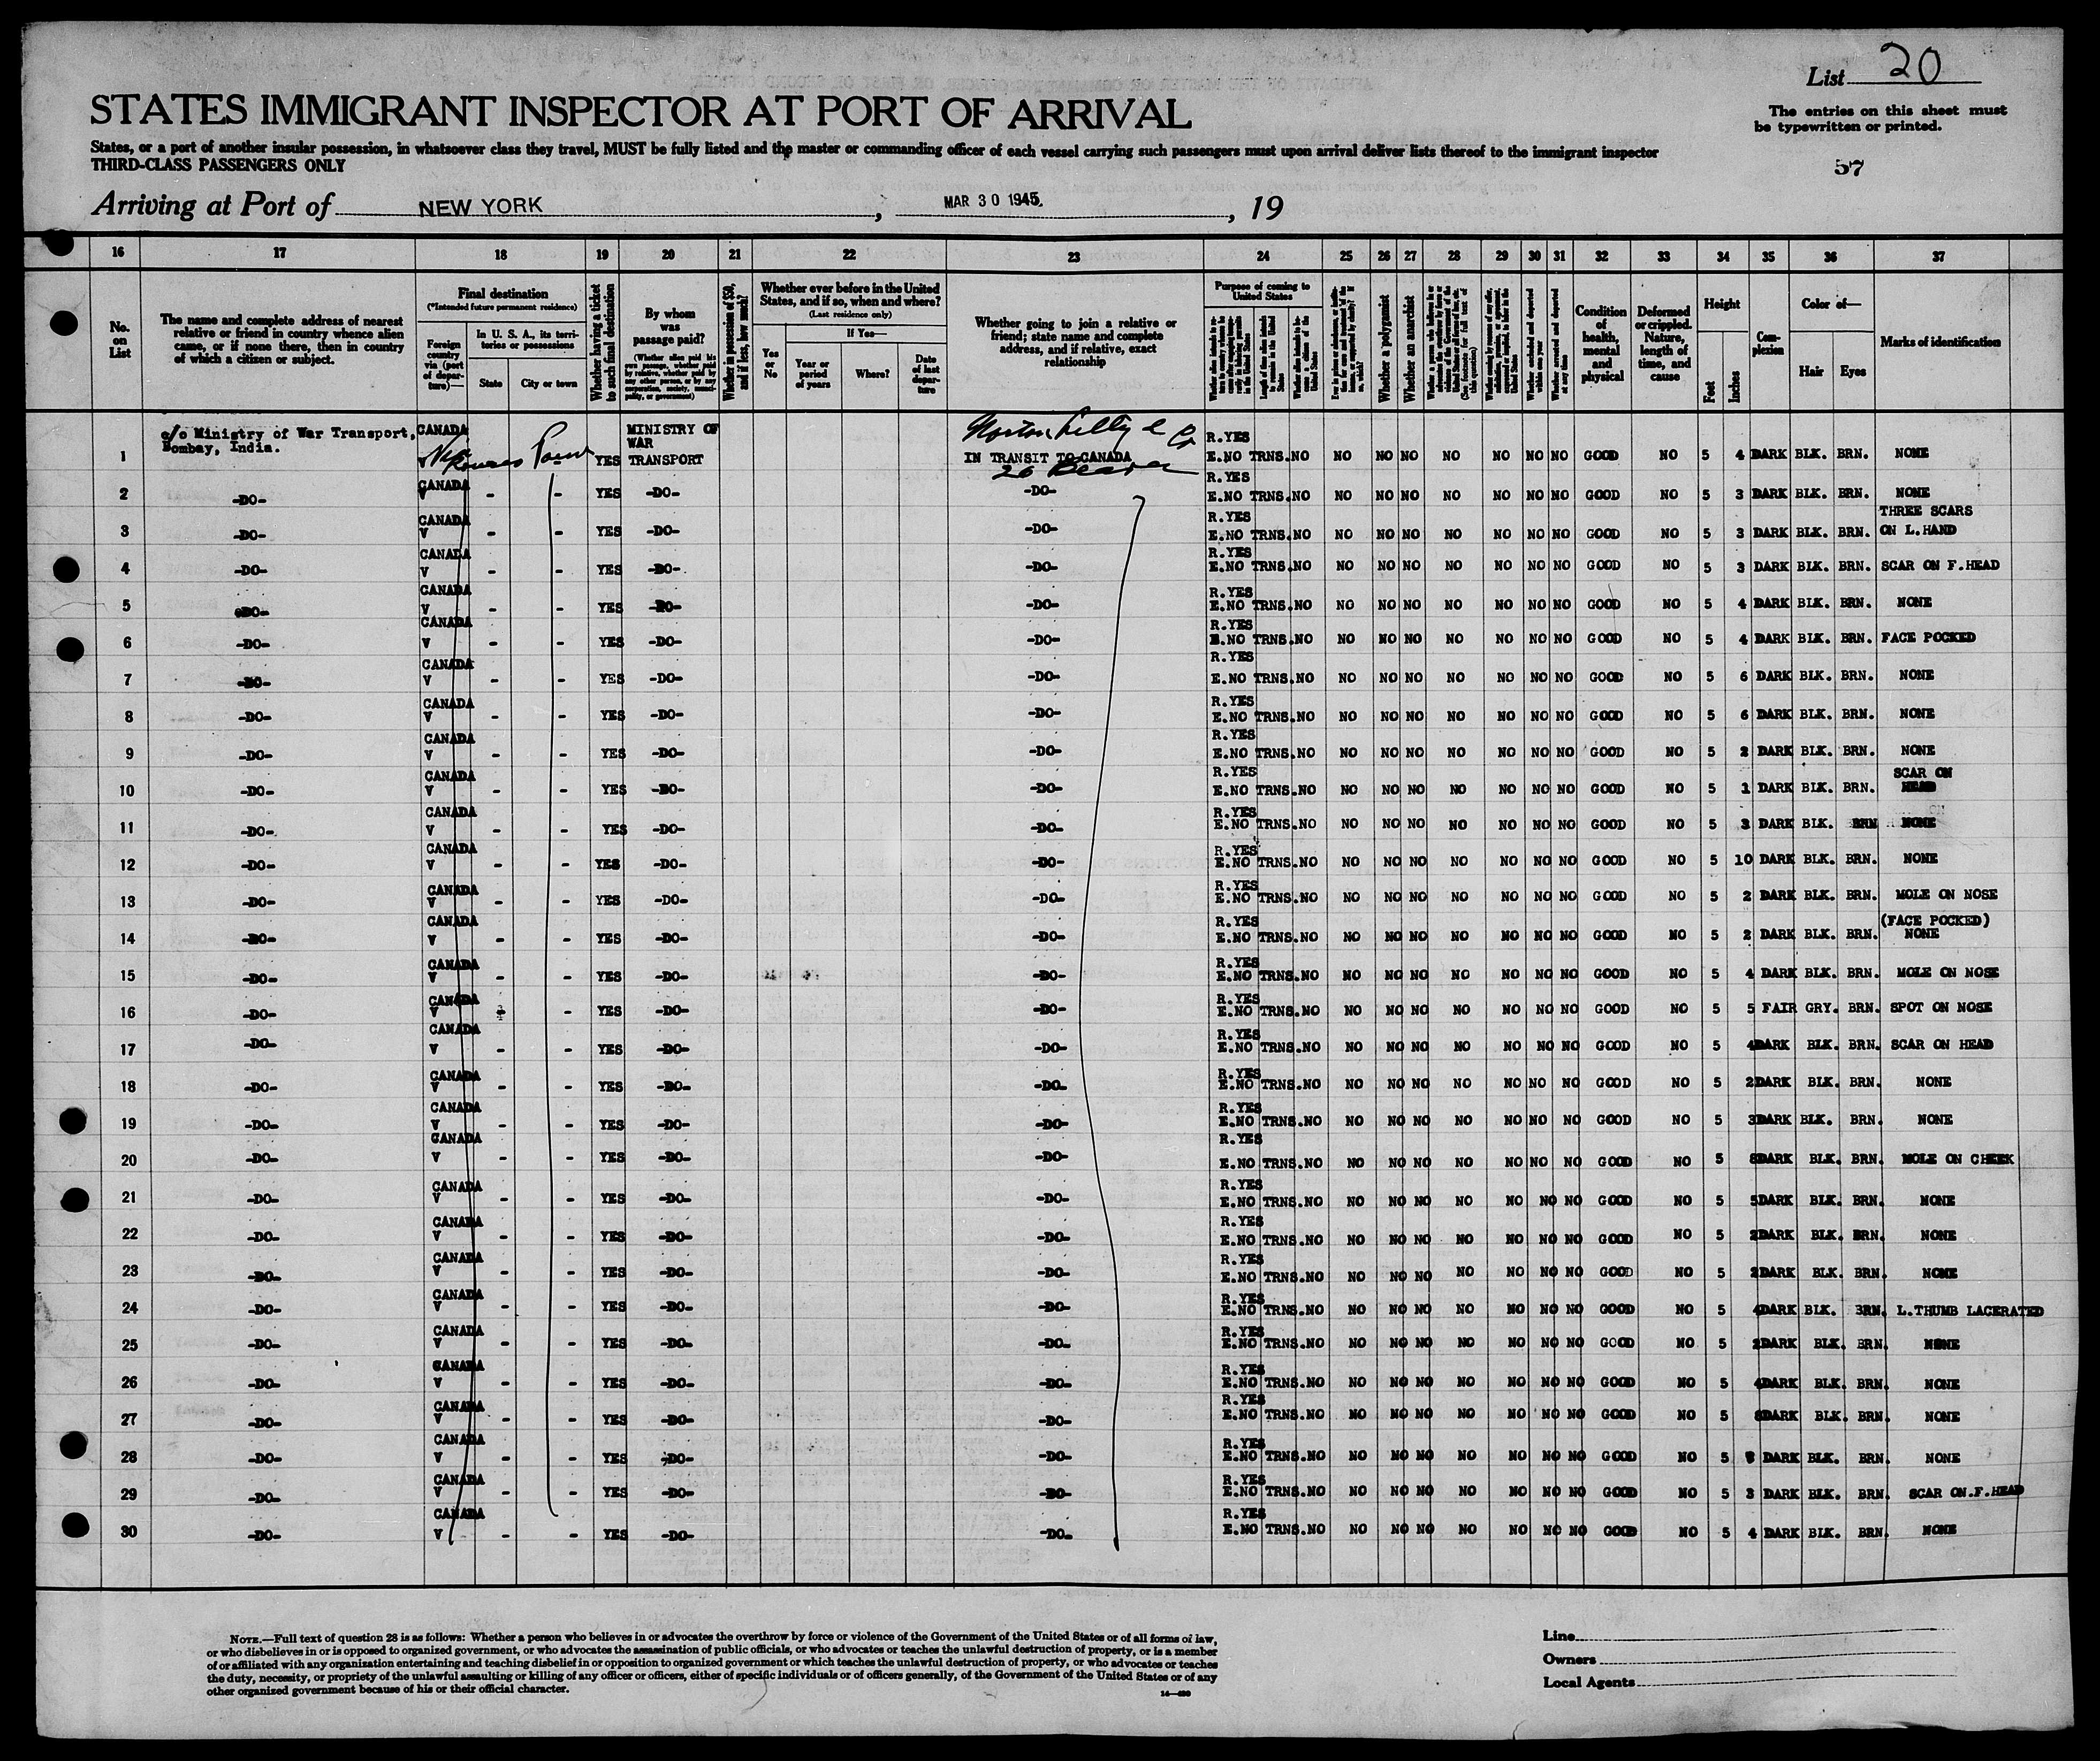 List 20
STATES IMMIGRANT INSPECTOR AT PORT OF ARRIVAL
The entries on this sheet must
be typewritten or printed.
States, or a part of another insular possession, in whatsoever class they travel, MUST be fully listed and the master or commanding officer of each vessel carrying such passengers must upon arrival deliver lists thereof to the immigrant inspector
THIRD-CLASS PASSENGERS ONLY
57
Arriving at Port of NEW YORK, MAR 30 1945, 19
16 17 18 19 20 21 22 23 24 25 26 27 28 29 30 31 32 33 34 35 36 37
No. on List
The name and complete address of nearest relative or friend in country whence alien came, or if none there, then in country of which a citizen or subject.
Final destination
(*Intended future permanent residence)
Foreign country via (port of departure)—
In U. S. A., its territories or possessions
State
City or town
Whether having a ticket to such final destination
By whom was passage paid?
(Whether alien paid his own passage, whether paid by relative, whether paid by any other person, or by any corporation, society, municipality, or government)
Whether in possession of $50, and if less, how much?
Whether ever before in the United States, and if so, when and where?
(Last residence only)
Yes or No
If Yes—
Year or period of years
Where?
Date of last departure
Whether going to join a relative or friend; state name and complete address, and if relative, exact relationship
Purpose of coming to United States
Whether a polygamist
Whether an anarchist
Condition of health, mental and physical
Deformed or crippled. Nature, length of time, and cause
Height
Feet
Inches
Complexion
Color of—
Hair
Eyes
Marks of identification
1 c/o Ministry of War Transport, Bombay, India. CANADA V YES MINISTRY OF WAR TRANSPORT Norton Lilly & Co IN TRANSIT TO CANADA 26 Beaver R.YES E.NO TRNS.NO NO NO NO NO NO NO NO GOOD NO 5 4 DARK BLK. BRN. NONE
2 -DO- CANADA V - - YES -DO- -DO- R.YES E.NO TRNS.NO NO NO NO NO NO NO NO GOOD NO 5 3 DARK BLK. BRN. NONE
3 -DO- CANADA V - - YES -DO- -DO- R.YES E.NO TRNS.NO NO NO NO NO NO NO NO GOOD NO 5 3 DARK BLK. BRN. THREE SCARS ON L.HAND
4 -DO- CANADA V - - YES -DO- -DO- R.YES E.NO TRNS.NO NO NO NO NO NO NO NO GOOD NO 5 3 DARK BLK. BRN. SCAR ON F.HEAD
5 -DO- CANADA V - - YES -DO- -DO- R.YES E.NO TRNS.NO NO NO NO NO NO NO NO GOOD NO 5 4 DARK BLK. BRN. NONE
6 -DO- CANADA V - - YES -DO- -DO- R.YES E.NO TRNS.NO NO NO NO NO NO NO NO GOOD NO 5 4 DARK BLK. BRN. FACE POCKED
7 -DO- CANADA V - - YES -DO- -DO- R.YES E.NO TRNS.NO NO NO NO NO NO NO NO GOOD NO 5 6 DARK BLK. BRN. NONE
8 -DO- CANADA V - - YES -DO- -DO- R.YES E.NO TRNS.NO NO NO NO NO NO NO NO GOOD NO 5 6 DARK BLK. BRN. NONE
9 -DO- CANADA V - - YES -DO- -DO- R.YES E.NO TRNS.NO NO NO NO NO NO NO NO GOOD NO 5 2 DARK BLK. BRN. NONE
10 -DO- CANADA V - - YES -DO- -DO- R.YES E.NO TRNS.NO NO NO NO NO NO NO NO GOOD NO 5 1 DARK BLK. BRN. SCAR ON HEAD
11 -DO- CANADA V - - YES -DO- -DO- R.YES E.NO TRNS.NO NO NO NO NO NO NO NO GOOD NO 5 3 DARK BLK. BRN NONE
12 -DO- CANADA V - - YES -DO- -DO- R.YES E.NO TRNS.NO NO NO NO NO NO NO NO GOOD NO 5 10 DARK BLK. BRN. NONE
13 -DO- CANADA V - - YES -DO- -DO- R.YES E.NO TRNS.NO NO NO NO NO NO NO NO GOOD NO 5 2 DARK BLK. BRN. MOLE ON NOSE
14 -DO- CANADA V - - YES -DO- -DO- R.YES E.NO TRNS.NO NO NO NO NO NO NO NO GOOD NO 5 2 DARK BLK. BRN. (FACE POCKED) NONE
15 -DO- CANADA V - - YES -DO- -DO- R.YES E.NO TRNS.NO NO NO NO NO NO NO NO GOOD NO 5 4 DARK BLK. BRN. MOLE ON NOSE
16 -DO- CANADA V - - YES -DO- -DO- R.YES E.NO TRNS.NO NO NO NO NO NO NO NO GOOD NO 5 5 FAIR GRY. BRN. SPOT ON NOSE
17 -DO- CANADA V - - YES -DO- -DO- R.YES E.NO TRNS.NO NO NO NO NO NO NO NO GOOD NO 5 4 DARK BLK. BRN. SCAR ON HEAD
18 -DO- CANADA V - - YES -DO- -DO- R.YES E.NO TRNS.NO NO NO NO NO NO NO NO GOOD NO 5 2 DARK BLK. BRN. NONE
19 -DO- CANADA V - - YES -DO- -DO- R.YES E.NO TRNS.NO NO NO NO NO NO NO NO GOOD NO 5 3 DARK BLK. BRN. NONE
20 -DO- CANADA V - - YES -DO- -DO- R.YES E.NO TRNS.NO NO NO NO NO NO NO NO GOOD NO 5 DARK BLK. BRN. MOLE ON CHEEK
21 -DO- CANADA V - - YES -DO- -DO- R.YES E.NO TRNS.NO NO NO NO NO NO NO NO GOOD NO 5 5 DARK BLK. BRN. NONE
22 -DO- CANADA V - - YES -DO- -DO- R.YES E.NO TRNS.NO NO NO NO NO NO NO NO GOOD NO 5 2 DARK BLK. BRN. NONE
23 -DO- CANADA V - - YES -DO- -DO- R.YES E.NO TRNS.NO NO NO NO NO NO NO NO GOOD NO 5 2 DARK BLK. BRN. NONE
24 -DO- CANADA V - - YES -DO- -DO- R.YES E.NO TRNS.NO NO NO NO NO NO NO NO GOOD NO 5 4 DARK BLK. BRN. L.THUMB LACERATED
25 -DO- CANADA V - - YES -DO- -DO- R.YES E.NO TRNS.NO NO NO NO NO NO NO NO GOOD NO 5 2 DARK BLK. BRN. NONE
26 -DO- CANADA V - - YES -DO- -DO- R.YES E.NO TRNS.NO NO NO NO NO NO NO NO GOOD NO 5 4 DARK BLK. BRN. NONE
27 -DO- CANADA V - - YES -DO- -DO- R.YES E.NO TRNS.NO NO NO NO NO NO NO NO GOOD NO 5 DARK BLK. BRN. NONE
28 -DO- CANADA V - - YES -DO- -DO- R.YES E.NO TRNS.NO NO NO NO NO NO NO NO GOOD NO 5 DARK BLK. BRN. NONE
29 -DO- CANADA V - - YES -DO- -DO- R.YES E.NO TRNS.NO NO NO NO NO NO NO NO GOOD NO 5 3 DARK BLK. BRN. SCAR ON.F.HEAD
30 -DO- CANADA V - - YES -DO- -DO- R.YES E.NO TRNS.NO NO NO NO NO NO NO NO GOOD NO 5 4 DARK BLK. BRN. NONE
NOTE.—Full text of question 28 is as follows: Whether a person who believes in or advocates the overthrow by force or violence of the Government of the United States or of all forms of law,
or who disbelieves in or is opposed to organized government, or who advocates the assassination of public officials, or who advocates or teaches the unlawful destruction of property, or is a member
of or affiliated with any organization entertaining and teaching disbelief in or opposition to organized government or which teaches the unlawful destruction of property, or who advocates or teaches
the duty, necessity, or propriety of the unlawful assaulting or killing of any officer or officers, either of specific individuals or of officers generally, of the Government of the United States or of any
other organized government because of his or their official character.
Line
Owners
Local Agents